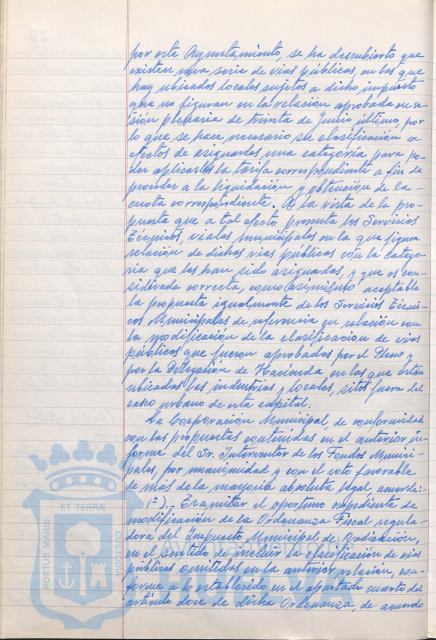 por este Ayuntamiento, se ha descubierto que
existen una serie de vías públicas, en las que
hay ubicados locales sujetos a dicho impuesto
que no figuran en la relación aprobada en se-
sión plenaria de treinta de Junio último, por
lo que se hace necesario su clasificación a
efectos de asignarles una categoría para po-
der aplicarles la tarifa correspondiente a fin de
proceder a la liquidación y obtención de la
cuota correspondiente. A la vista de la pro-
puesta que a tal efecto presenta los Servicios
Técnicos, viales, municipales en la que figura
relación de dichas vías públicas con la catego-
ría que les han sido asignadas, y que es con-
siderada correcta, como asimismo aceptable
la propuesta igualmente de los Servicios Técni-
cos Municipales de referencia en relación con
la modificación de la clasificación de vías
públicas que fueron aprobadas por el Pleno y
por la Delegación de Hacienda, en las que están
ubicadas las industrias y locales, sitos fuera del
casco urbano de esta capital.
La Corporación Municipal, de conformidad
con las propuestas contenidas en el anterior in-
forme del Sr. Interventor de los Fondos Munici-
pales, por unanimidad y con el voto favorable
de más de la mayoría absoluta legal, acuerda:
1º).- Tramitar el oportuno expediente de
modificación de la Ordenanza Fiscal regula-
dora del Impuesto Municipal de Radicación,
en el sentido de incluir la clasificación de vías
públicas omitidas en la anterior relación, con-
forme a lo establecido en el apartado cuarto del
artículo doce de dicha Ordenanza, de acuerdo
PORTUS MARIS ET TERRAE CUSTODIA
HUELVA